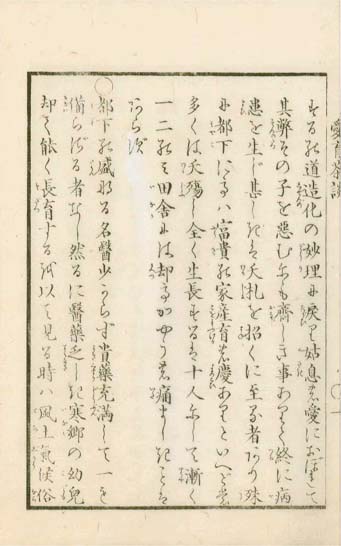 愛育茶譚
するは道造化の妙理に戻り姑息の愛におぼれて
其弊その子を悪むにも齊しき事ありて終に病
患を生じ甚しきは夭札を招くに至る者あり殊
に都下に至ては富貴の家産育の慶ありといへども
多くは夭殤し全く生長するは十人にして漸く
一二のみ田舎には却てかやうの痛ましきことは
あらず
都下の盛なる名醫少からず貴藥充満して一も
備らざる者なし然るに醫藥乏しき寒郷の幼兒
却て能く長育するを以て見る時ハ風土氣候俗